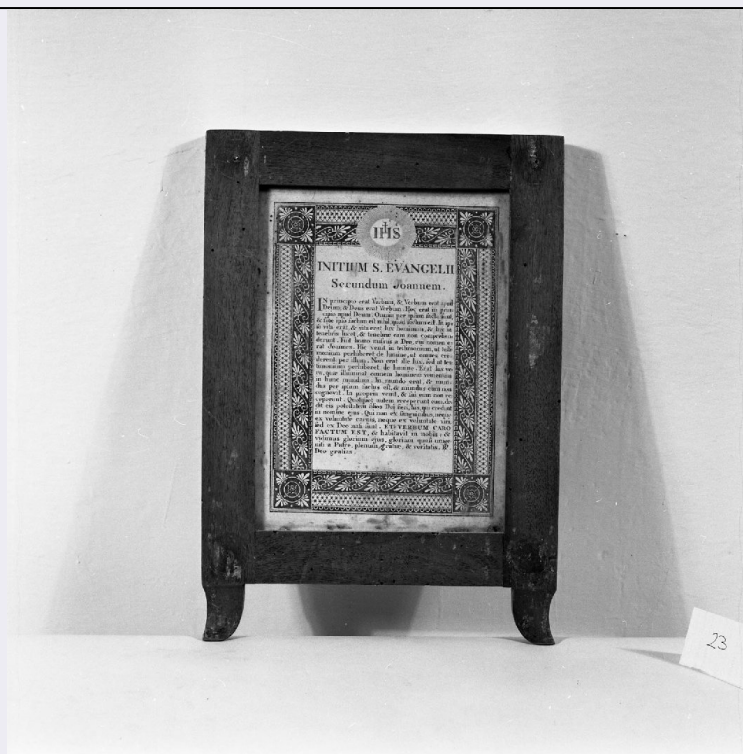 IHS
INITIUM S. EVANGELII
Secundum Joannem.
IN principio erat Verbum, & Verbum erat apud
Deum, & Deus erat Verbum. Hoc erat in prin-
cipio apud Deum. Omnia per ipsum facta sunt,
& sine ipso factum est nihil, quod factum est. In ipso
& vita erat, & vita erat lux hominum, & lux in
tenebris lucet, & tenebrae eam non comprehen-
derunt. Fuit homo missus a Deo, cui nomen e-
rat Joannes. Hic venit in testimonium, ut testi-
monium perhiberet de lumine, ut omnes cre-
derent per illum. Non erat ille lux, sed ut tes-
timonium perhiberet de lumine. Erat lux ve-
ra, quae illuminat omnem hominem venientem
in hunc mundum. In mundo erat, & mun-
dus per ipsum factus est, & mundus eum non
cognovit. In propria venit, & sui eum non re-
ceperunt. Quotquot autem receperunt eum, de-
dit eis potestatem filios Dei fieri, his, qui credunt
in nomine ejus. Qui non ex sanguinibus, neque
ex voluntate carnis, neque ex voluntate viri
sed ex Deo nati sunt. ET VERBUM CARO
FACTUM EST, & habitavit in nobis: &
vidimus gloriam ejus, gloriam quasi unige
niti a Patre, plenum gratiae, & veritatis. ℟
Deo gratias.
23